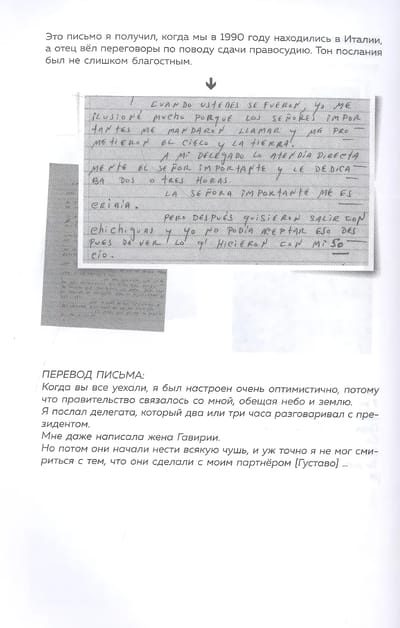 Это письмо я получил, когда мы в 1990 году находились в Италии,
а отец вёл переговоры по поводу сдачи правосудию. Тон послания
был не слишком благостным.
CUANDO USTEDES SE FUERON, YO ME
ILUSIONÉ MUCHO PORQUE LOS SEÑORES IMPOR
TANTES ME MANDARON LLAMAR Y ME PRO
METIERON EL CIELO Y LA TIERRA.
A MI DELEGADO LO ATENDIA DIRECTA
MENTE EL SEÑOR IMPORTANTE Y LE DEDICA
BA DOS O TRES HORAS.
LA SEÑORA IMPORTANTE ME ES
CRIBIA.
PERO DESPUÉS QUISIERON SALIR CON
chichiguas Y YO NO PODÍA ACEPTAR ESO DES
PUES DE VER LO q' HICIERON CON MI SO
CIO.
ПЕРЕВОД ПИСЬМА:
Когда вы все уехали, я был настроен очень оптимистично, потому
что правительство связалось со мной, обещая небо и землю.
Я послал делегата, который два или три часа разговаривал с пре-
зидентом.
Мне даже написала жена Гавирии.
Но потом они начали нести всякую чушь, и уж точно я не мог сми-
риться с тем, что они сделали с моим партнёром [Густаво] ...